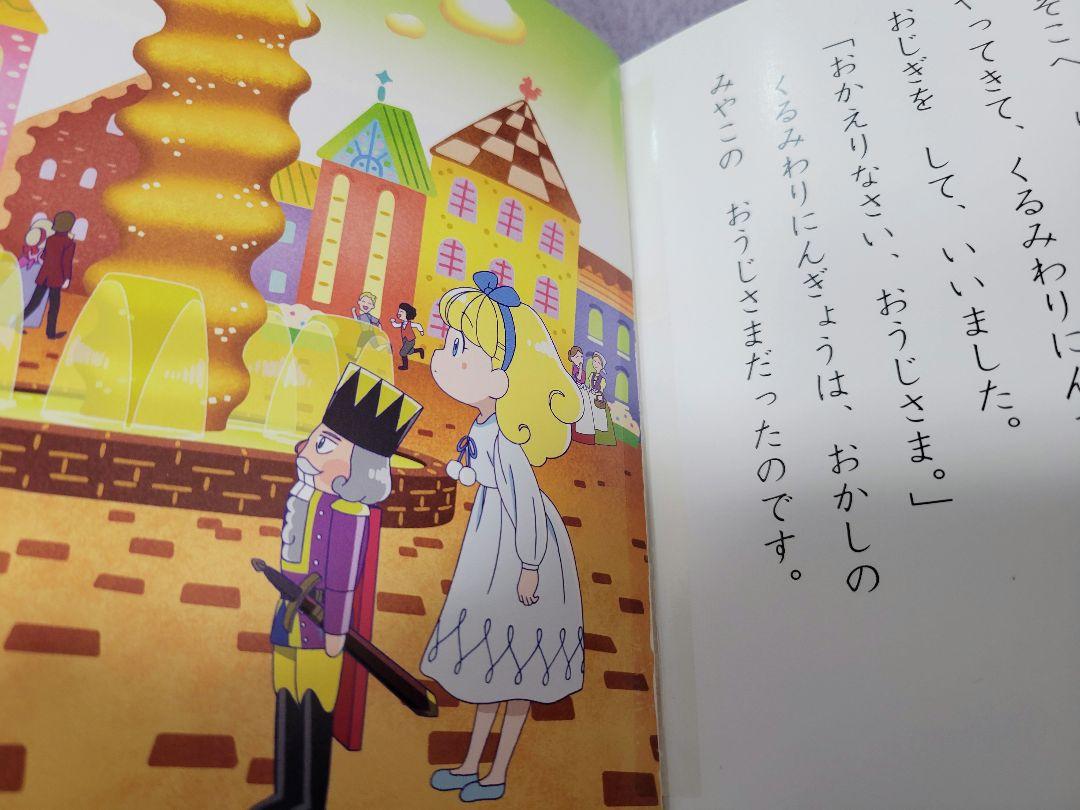 そこへ
やってきて、くるみわりにん
おじぎを　して、いいました。
「おかえりなさい、おうじさま。」
くるみわりにんぎょうは、おかしの
みやこの　おうじさまだったのです。